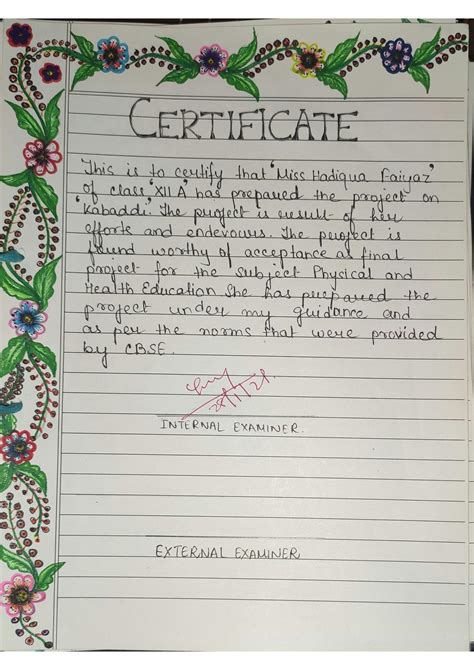 CERTIFICATE
This is to certify that 'Miss Hadiqua Faiyaz'
of class 'XII A' has prepared the project on
'Kabaddi'. The project is result of her
efforts and endevours. The project is
found worthy of acceptance as final
project for the subject Physical and
Health Education. She has prepared the
project under my guidance and
as per the norms that were provided
by CBSE.
INTERNAL EXAMINER.
EXTERNAL EXAMINER